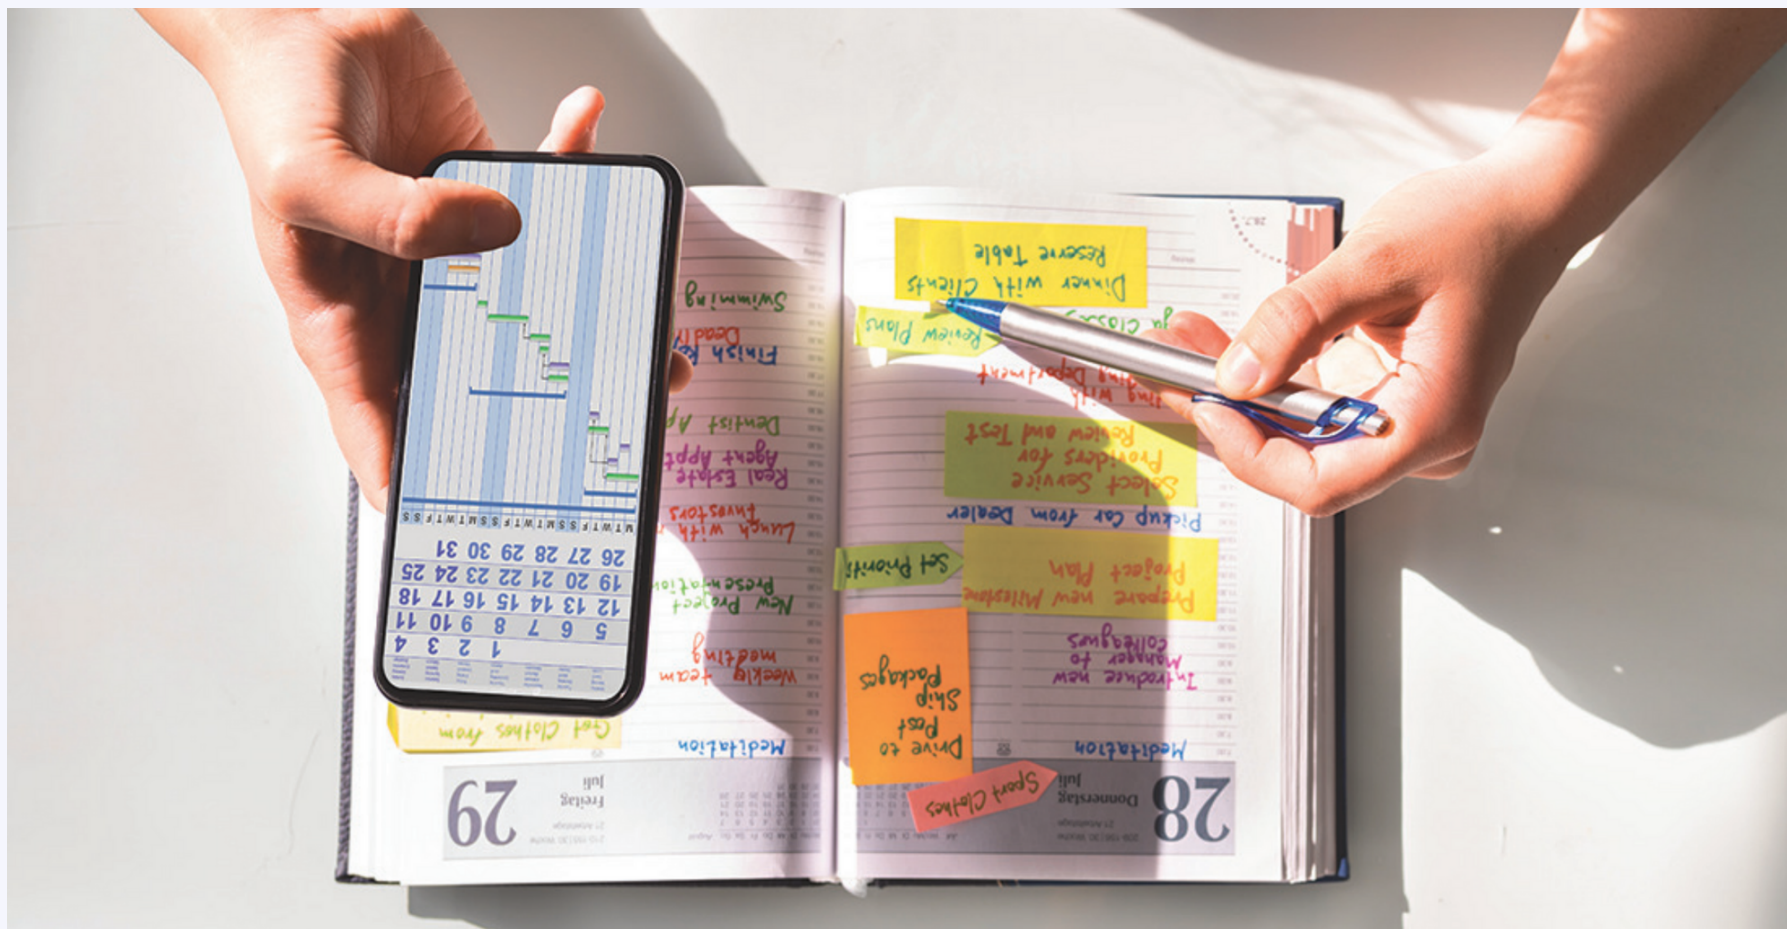 28
Donnerstag
Juli
21 Arbeitstage
Sport Clothes
Meditation
Drive to
Post
Ship
Packages
Introduce new
Manager to
Colleagus
Prepare new Milestone
Project Plan
Set Prioriti
Pickup Car from Dealer
Select Service
Providers for
Review and Test
ting with
ting Department
Review Plans
Dinner with Clients
Reserve Table
29
Freitag
Juli
21 Arbeitstage
August
Meditation
Get Clothes from
Weekly team
meeting
New Project
Presentation
Lunch with
Investors
Real Estate
Agent Appt
Dentist Ap
Finish
Deadli
Swimming
1 2 3 4
5 6 7 8 9 10 11
12 13 14 15 16 17 18
19 20 21 22 23 24 25
26 27 28 29 30 31
M T W T F S S M T W T F S S M T W T F S S